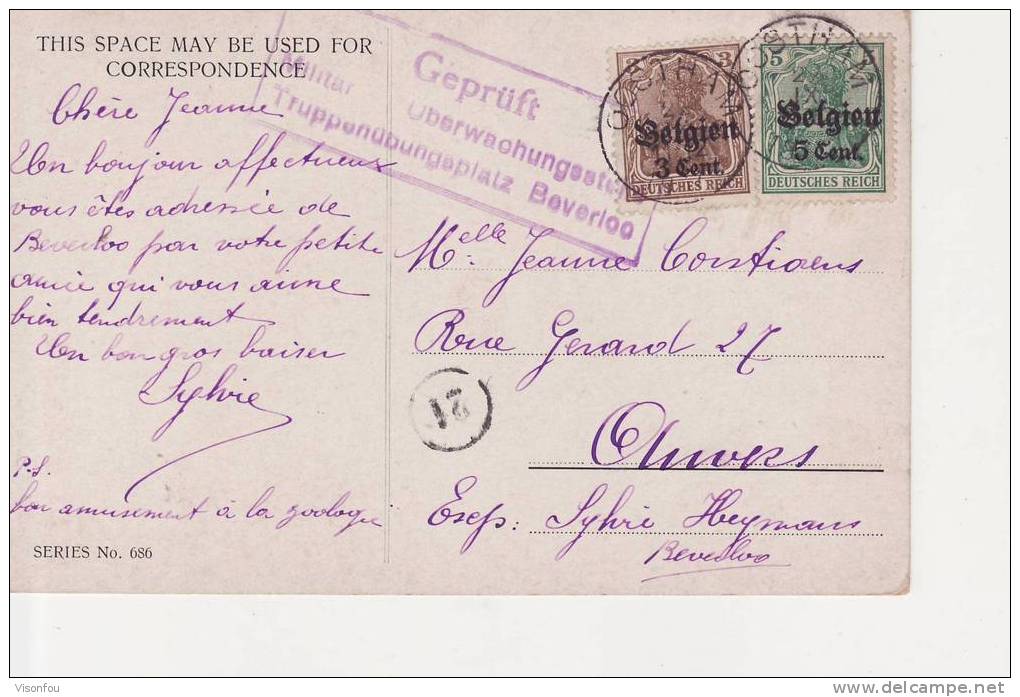 THIS SPACE MAY BE USED FOR
CORRESPONDENCE
Chère Jeanne
Un bonjour affectueux
vous êtes adressée de
Beverloo par votre petite
amie qui vous aime
bien tendrement
Un bon gros baiser
Sylvie
P.S.
bon amusement à la zoologie
SERIES No. 686
Geprüft
Militär Überwachungsst
Truppenübungsplatz Beverloo
3
Belgien
3 Cent.
DEUTSCHES REICH
5
Belgien
5 Cent.
DEUTSCHES REICH
OOSTHAM
OOSTHAM
Melle Jeanne Corstiaens
Rue Gerard 27
Anvers
21
Exep: Sylvie Heymans
Beverloo
Visonfou
delcampe.net